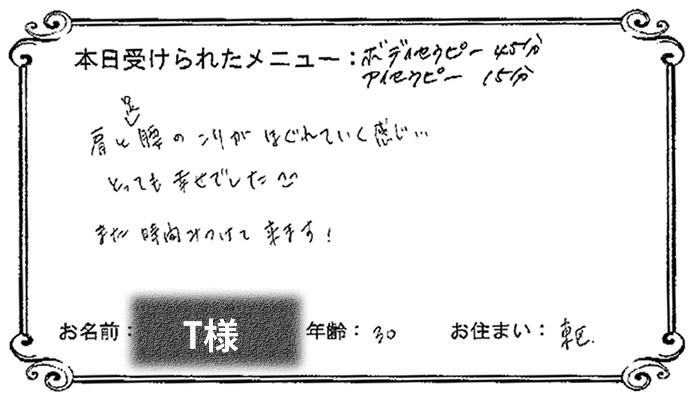 本日受けられたメニュー：ボディセラピー 45分
アイセラピー 15分
足
肩と腰のこりがほぐれていく感じ…
とっても幸せでした^^
また時間みつけて来ます！
お名前：T様 年齢：30 お住まい：